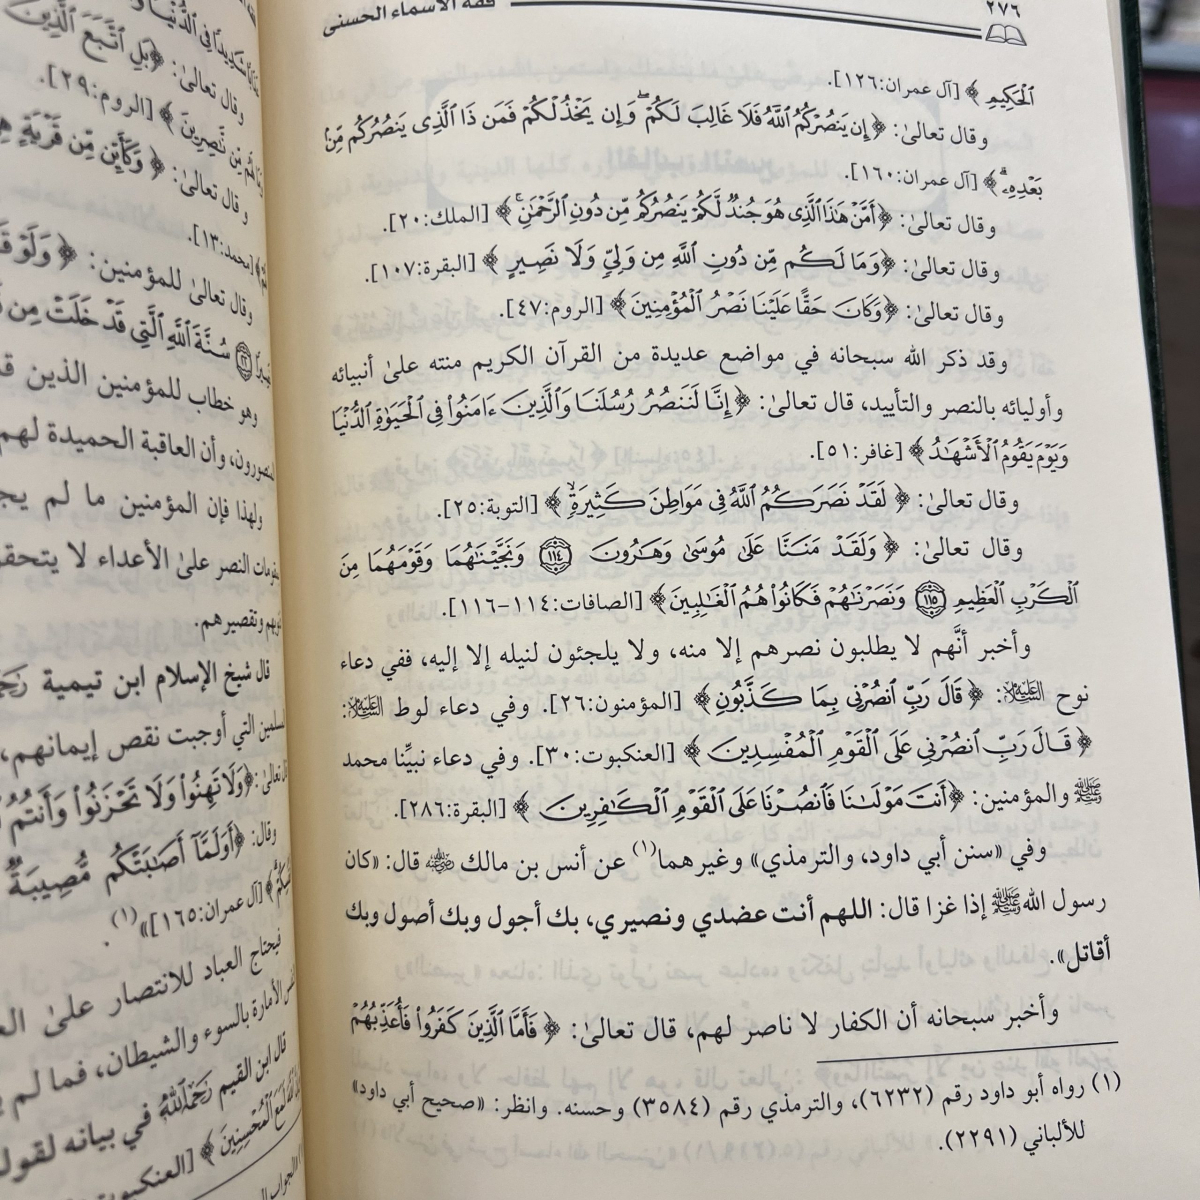 ٢٧٦
فقه الأسماء الحسنى
ٱلْحَكِيمِ ﴾ [آل عمران:١٢٦].
وقال تعالىٰ: ﴿إِن يَنصُرْكُمُ ٱللَّهُ فَلَا غَالِبَ لَكُمْ ۖ وَإِن يَخْذُلْكُمْ فَمَن ذَا ٱلَّذِى يَنصُرُكُم مِّنۢ
بَعْدِهِۦ ۗ﴾ [آل عمران:١٦٠].
وقال تعالىٰ: ﴿أَمَّنْ هَٰذَا ٱلَّذِى هُوَ جُندٌ لَّكُمْ يَنصُرُكُم مِّن دُونِ ٱلرَّحْمَٰنِ ۚ﴾ [الملك:٢٠].
وقال تعالىٰ: ﴿وَمَا لَكُم مِّن دُونِ ٱللَّهِ مِن وَلِىٍّ وَلَا نَصِيرٍ ﴾ [البقرة:١٠٧].
وقال تعالىٰ: ﴿وَكَانَ حَقًّا عَلَيْنَا نَصْرُ ٱلْمُؤْمِنِينَ ﴾ [الروم:٤٧].
وقد ذكر الله سبحانه في مواضع عديدة من القرآن الكريم منته علىٰ أنبيائه
وأوليائه بالنصر والتأييد، قال تعالىٰ: ﴿ إِنَّا لَنَنصُرُ رُسُلَنَا وَٱلَّذِينَ ءَامَنُوا۟ فِى ٱلْحَيَوٰةِ ٱلدُّنْيَا
وَيَوْمَ يَقُومُ ٱلْأَشْهَٰدُ ﴾ [غافر:٥١].
وقال تعالىٰ: ﴿ لَقَدْ نَصَرَكُمُ ٱللَّهُ فِى مَوَاطِنَ كَثِيرَةٍ ۙ﴾ [التوبة:٢٥].
وقال تعالىٰ: ﴿ وَلَقَدْ مَنَنَّا عَلَىٰ مُوسَىٰ وَهَٰرُونَ ١١٤ وَنَجَّيْنَٰهُمَا وَقَوْمَهُمَا مِنَ
ٱلْكَرْبِ ٱلْعَظِيمِ ١١٥ وَنَصَرْنَٰهُمْ فَكَانُوا۟ هُمُ ٱلْغَٰلِبِينَ﴾ [الصافات:١١٤-١١٦].
وأخبر أنَّهم لا يطلبون نصرهم إلا منه، ولا يلجئون لنيله إلا إليه، ففي دعاء
نوح عليه السلام: ﴿ قَالَ رَبِّ ٱنصُرْنِى بِمَا كَذَّبُونِ ﴾ [المؤمنون:٢٦]. وفي دعاء لوط عليه السلام:
﴿ قَالَ رَبِّ ٱنصُرْنِى عَلَى ٱلْقَوْمِ ٱلْمُفْسِدِينَ ﴾ [العنكبوت:٣٠]. وفي دعاء نبيِّنا محمد
ﷺ والمؤمنين: ﴿أَنتَ مَوْلَىٰنَا فَٱنصُرْنَا عَلَى ٱلْقَوْمِ ٱلْكَٰفِرِينَ ﴾ [البقرة:٢٨٦].
وفي «سنن أبي داود، والترمذي» وغيرهما(١) عن أنس بن مالك رضي الله عنه قال: «كان
رسول الله ﷺ إذا غزا قال: اللهم أنت عضدي ونصيري، بك أجول وبك أصول وبك
أقاتل».
وأخبر سبحانه أن الكفار لا ناصر لهم، قال تعالىٰ: ﴿ فَأَمَّا ٱلَّذِينَ كَفَرُوا۟ فَأُعَذِّبُهُمْ
(١) رواه أبو داود رقم (٦٢٣٢)، والترمذي رقم (٣٥٨٤) وحسنه. وانظر: «صحيح أبي داود»
للألباني (٢٢٩١).
شَدِيدًا فِى ٱلدُّنْيَا
وقال تعالىٰ: ﴿بَلِ ٱتَّبَعَ ٱلَّذِينَ
مِّن نَّٰصِرِينَ ﴾ [الروم:٢٩].
وقال تعالىٰ: ﴿ وَكَأَيِّن مِّن قَرْيَةٍ
[محمد:١٣].
وقال تعالىٰ للمؤمنين: ﴿ وَلَوْ
سُنَّةَ ٱللَّهِ ٱلَّتِى قَدْ خَلَتْ مِن
وهو خطاب للمؤمنين الذين
منصورون، وأن العاقبة الحميدة لهم
ولهذا فإن المؤمنين ما لم
النصر علىٰ الأعداء لا
وتقصيرهم.
قال شيخ الإسلام ابن تيمية
التي أوجبت نقص إيمانهم،
تعالىٰ: ﴿وَلَا تَهِنُوا۟ وَلَا تَحْزَنُوا۟ وَأَنتُمُ
وقال: ﴿أَوَلَمَّآ أَصَٰبَتْكُم مُّصِيبَةٌ
﴾ [آل عمران:١٦٥]»(١).
فيحتاج العباد للانتصار علىٰ
الأمارة بالسوء والشيطان، فما لم
قال ابن القيم رحمه الله في بيانه
لَمَعَ ٱلْمُحْسِنِينَ ﴾